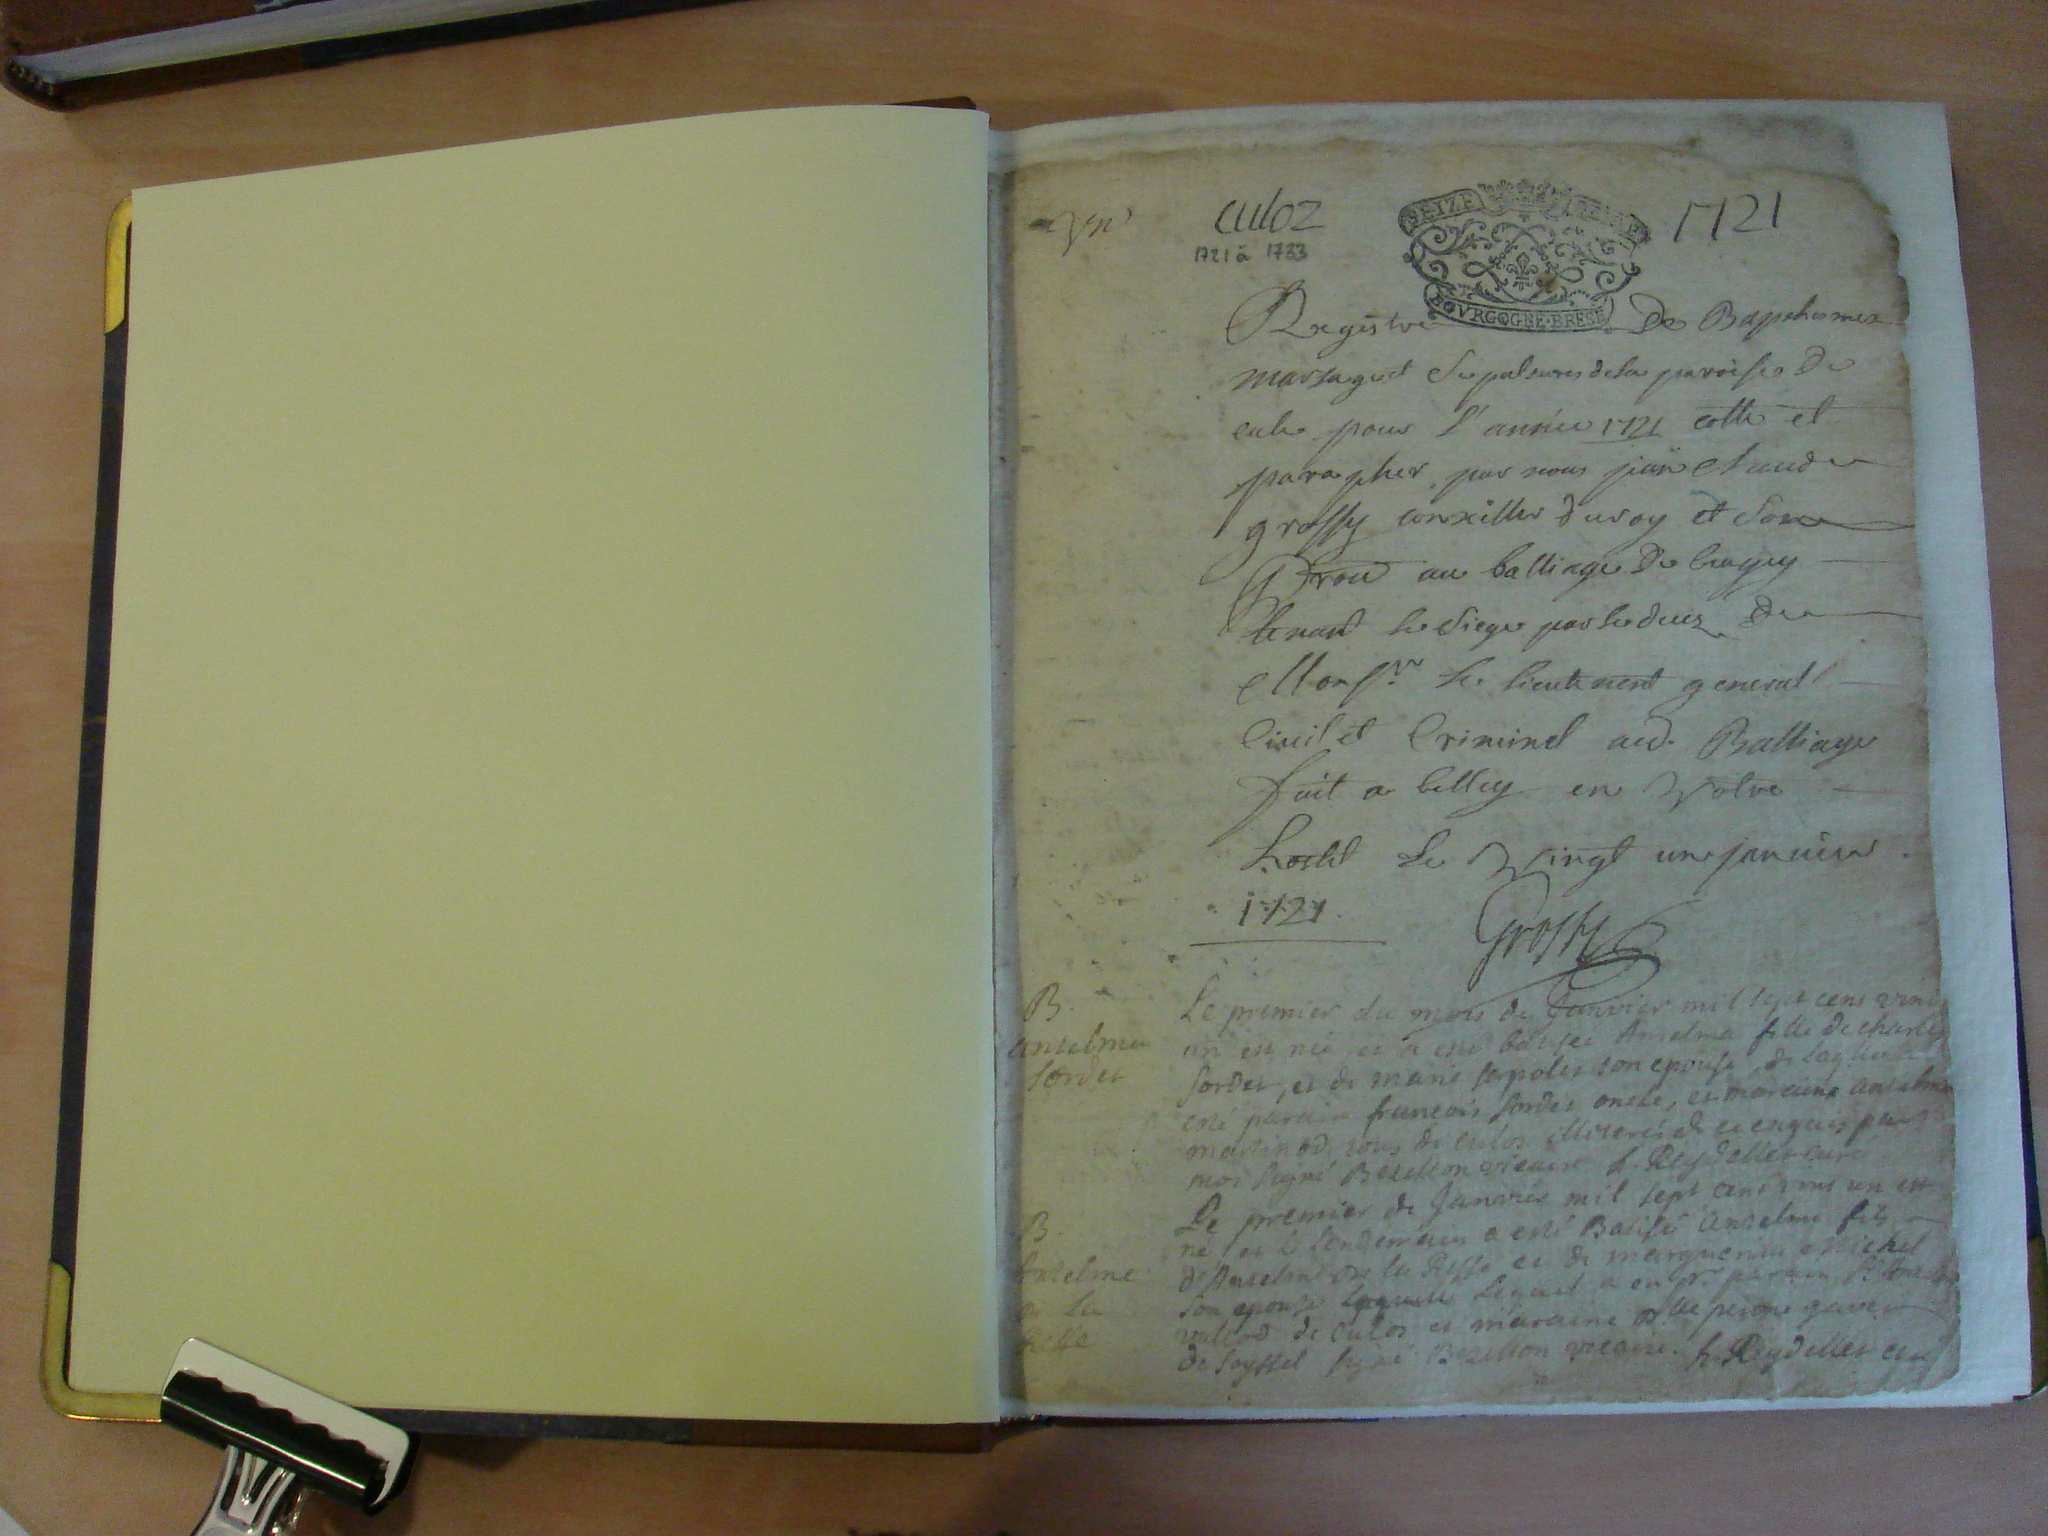 culoz
1721 à 1733
SEIZE
BOVRGOGNE·BRESE
1721
Registre De Baptesmes
mariage et Sepultures de la paroisse De
culo pour l'année 1721 cotté et
parapher par nous jean Claude
grossy conseiller du roy et son
au balliage De bugey
tenant le siege par le decez De
Monsr. le lieutenant general
Civil et Criminel aud. Balliage
fait a belley en Notre
hostel Le Vingt une janvier
1721.
Grossy
B.
anselme
sordet
Le premier du mois de Janvier mil sept cens vint
un est née et a esté batisée Anselma fille de charle
sordet, et de marie son epouse,
esté parain francois sordet oncle, et maraine anselme
martinod, tous de culoz illiterés de ce enquis par
moi signé vicaire. f. Reydellet curé
B.
Anselme
de la
Le premier de Janvier mil sept cens vint un est
né et le lendemain a esté Batisé Anselme fils
d'Anselme de la et de marguerite Michel
son epouse lequel a eu pr parain
de culoz et maraine
de seyssel signé vicaire. f. Reydellet curé